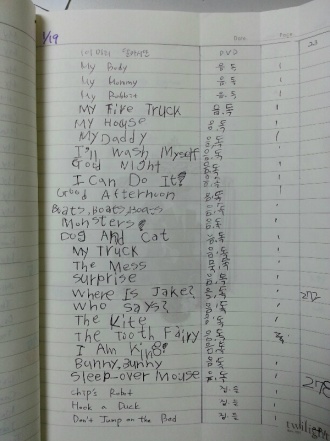 1/19
DVD
My Body 음독
My Mommy 음독
My Rabbit 음독
My Fire Truck 음독
My House 음독
My Daddy 음독
I'll Wash Myself 음독
Good Night 음독
I Can Do It! 음독
Good Afternoon 음독
Boats, Boats, Boats 음독
Monsters! 음독
Dog And Cat 음독
My Truck 음독
The Mess 음독
surprise 음독
Where Is Jake? 음독
Who Says? 음독
The Kite 음독
The Tooth Fairy 음독
I Am King! 음독
Bunny, Bunny 음독
Sleep-over Mouse 음독
Chip's Robot 집듣
Hook a Duck 집듣
Don't Jump on the Bed 집듣
272
278